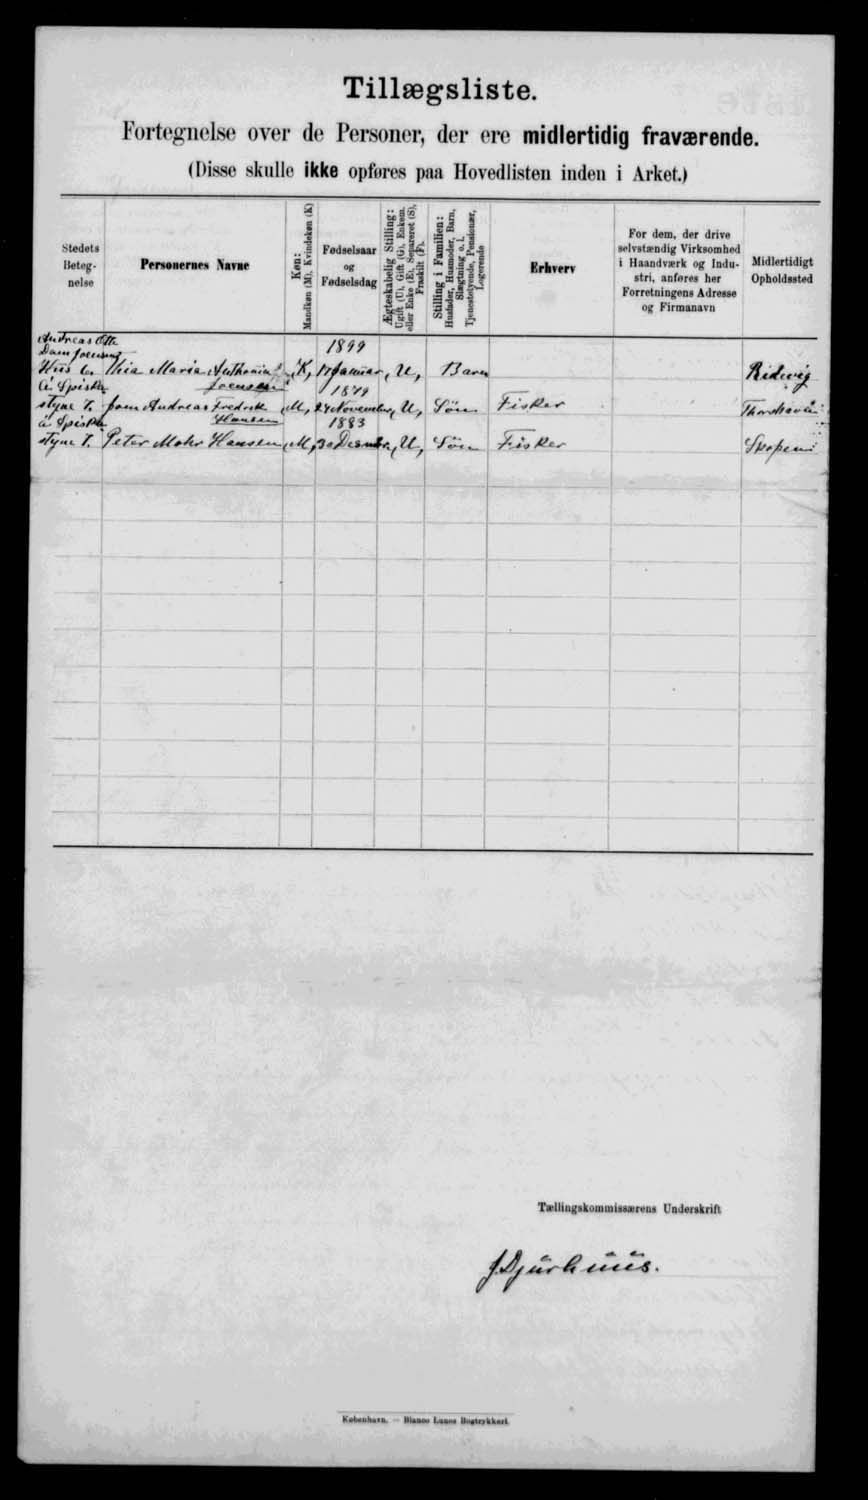 Tillægsliste.
Fortegnelse over de Personer, der ere midlertidig fraværende.
(Disse skulle ikke opføres paa Hovedlisten inden i Arket.)
Stedets
Beteg-
nelse
Personernes Navne
Køn:
Mandkøn (M), Kvindekøn (K)
Fødselsaar
og
Fødselsdag
Ægteskabelig Stilling:
Ugift (U), Gift (G), Enkem.
eller Enke (E), Separeret (S),
Fraskilt (F).
Stilling i Familien:
Husfader, Husmoder, Barn,
Slægtning o. l.
Tjenestetyende, Pensionær,
Logerende
Erhverv
For dem, der drive
selvstændig Virksomhed
i Haandværk og Indu-
stri, anføres her
Forretningens Adresse
og Firmanavn
Midlertidigt
Opholdssted
Andreas Otto
1899
Hus Maria Anthonia K, 17 Januar, U, Barn
Joensen 1879
styne T. Andreas Fredrik M, 24 November, U, Søn Fisker Thorshavn
Hansen 1883
styne T. Peter Mohr Hansen M, 30 U, Søn Fisker Skopen
Tællingskommissærens Underskrift
J Djurhuus.
København. — Bianco Lunos Bogtrykkeri.